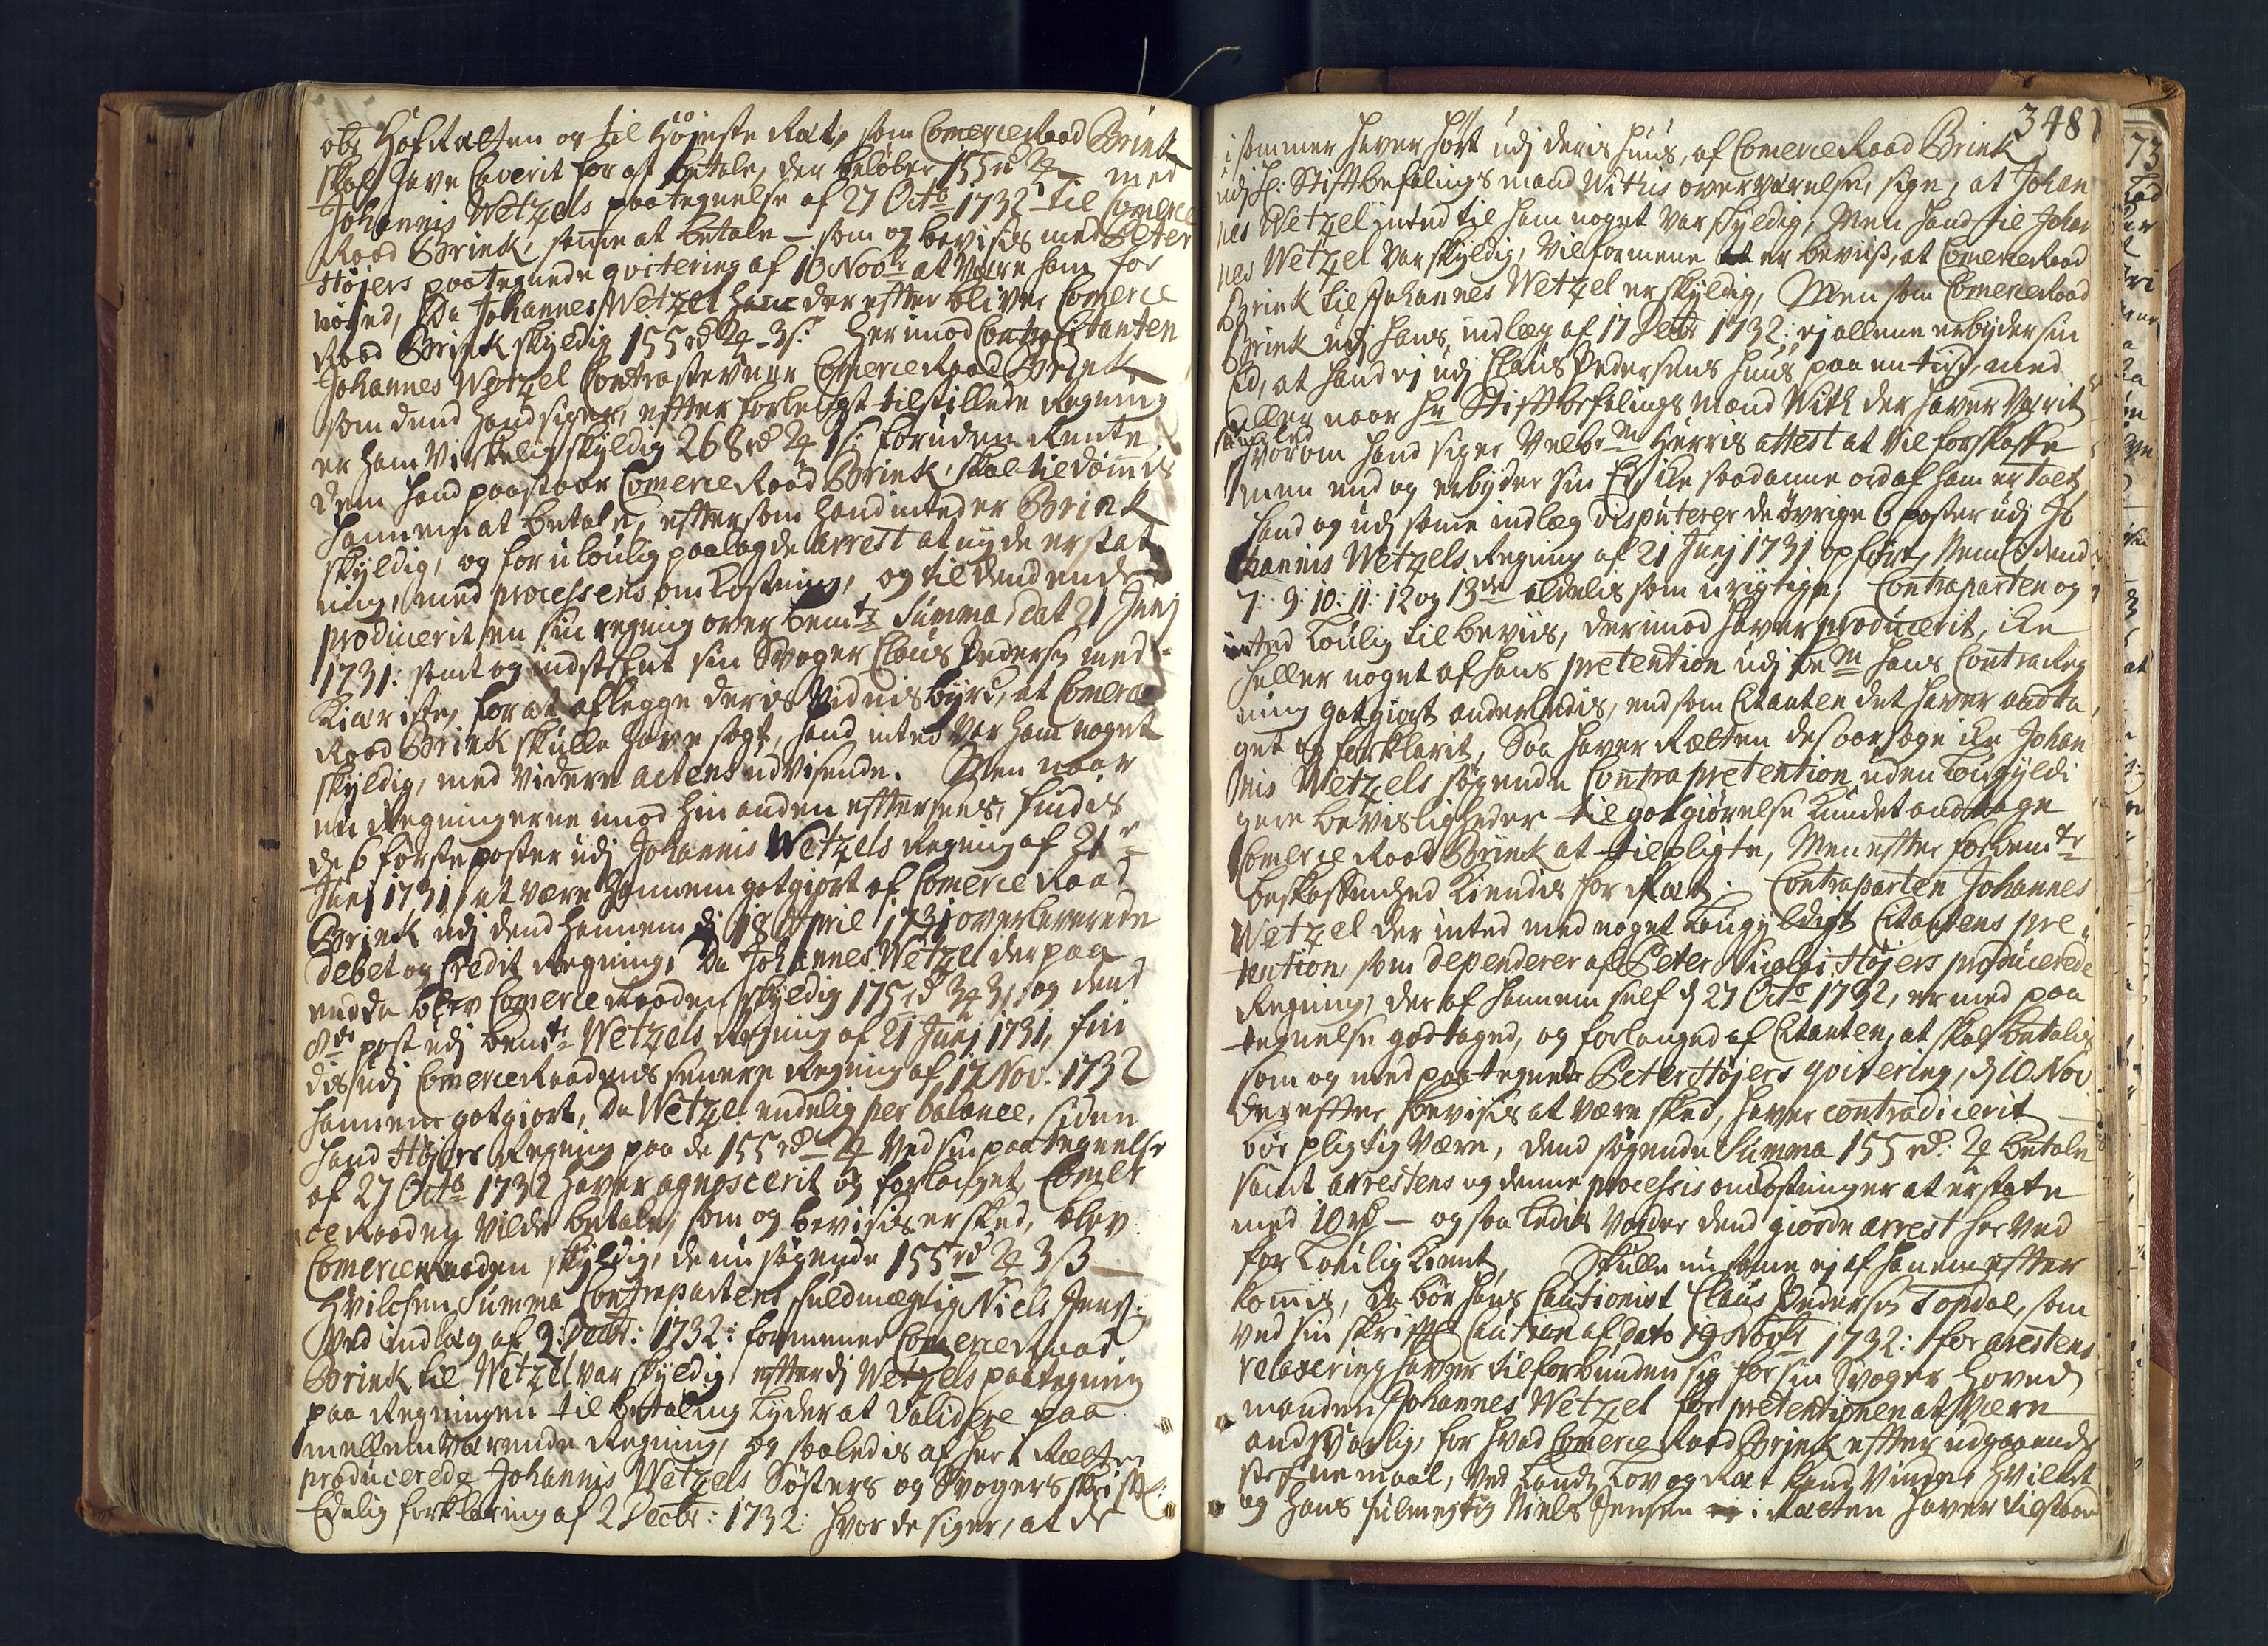 obs Hof Rætten og til Højeste Ræt, som Comerce Raad Brink
skal have Caverit for at betale, der beløber 155 rd 2 ℔ med
Johannis Wetzels paategnelse af 27 Octb 1732 til Comerce
Raad Brink, samme at betale – som og bevisis med Peter
Højers paategnede qvitering af 10 Novbr at være ham for
nøyed, Da Johannes Wetzel der efter bliver Comerce
Raad Brink skyldig 155 rd 2 ℔ 3 s: Herimod Contra Citanten
Johannes Wetzel Contrastevner Comerce Raad Brink
som dend hand siger, effter forlengst tilstillede Regning
er ham Virkelig skyldig 268 rd 2 ℔ 1 s: foruden Rente
dem hand paastaar Comerce Raad Brink skal tildømmis
hannem at betale, eftersom hand inted er Brink
skyldig, og for ulovlig paalagde arrest at nyde erstat
ning, med processens omkostning, og til dend ende
producerit en sin regning over bemte Summa, dat 21 Junj
1731: samt og indstefnt sin Svoger Claus Pedersen med
Kieriste, for at aflegge deris Vidnisbyrd, at Comerce
Raad Brink skulle have sagt, hand inted var ham noget
skyldig, med Videre actens udvisende. Men naar
nu Regningerne imod hinanden eftersees, findis
de 6 første poster udj Johannis Wetzels Regning af 21
Junj 1731, at være hannem gotgiort af Comerce Raad
Brink udj dend hannem d 18 April 1731 overleverede
debet og Credit Regning, da Johannes Wetzel derpaa
endda blev Comerce Raaden skyldig 175 rd 3 ℔ 3 s: og dend
8de post udj bemte Wetzels Regning af 21 Junj 1731, fin
dis udj Comerce Raadens senere Regning af 17 Nov: 1732
hannem gotgiort, da Wetzel endelig per balance, siden
hand Højers Regning paa de 155 rd 2 ℔ Ved sin paategnelse
af 27 Octb 1732 haver agnoscerit og forlanget, Comer
ce Raaden vilde betale, som og bevisis er sked, blev
Comerce Raaden skyldig, de nu søgende 155 rd 2 ℔ 3 ß
hvilchen Summa Contrapartens fuldmægtig Niels Jensen
Ved indlæg af 3 Decbr: 1732: formener Comerce Raad
Brink til Wetzel var skyldig, efterdj Wetzels paategning
paa Regningen til betaling lyder at Validere paa
mellemværende Regning, og saaledis af her i Rætten
producerede Johannis Wetzels Søsters og Svogers skriftl:
Edelig forklaring af 2 Decbr: 1732: hvor de siger, at de
348
i sommer haver hørt udj deris huus, af Comerce Raad Brink
udj H: Stiftbefalings mand Withs overværelse, sige, at Johan
nes Wetzel inted til ham noget var skyldig, Men hand til Johan
nes Wetzel var skyldig, Vil formene er beviist, at Comerce Raad
Brink til Johannes Wetzel er skyldig, Men som Comerce Raad
Brink udj hans indlæg af 17 Decbr 1732: ej allene erbyder sin
Eed, at hand ej udj Claus Pedersens huus paa en tiid, med
eller naar Hr Stiftbefalings mand Witk der haver Værit
samled
hvorom hand siger Velbem Herris attest at vil forskaffe
men end og erbyder sin Eed, icke saadanne ord af ham er talt,
hand og udj samme indlæg disputerer de øvrige 6 poster udj Jo
hannis Wetzels Regning af 21 Junj 1731 opført, Neml: dend
7: 9: 10: 11: 12 og 13de aldelis som urigtige, Contraparten og
inted Lovlig til beviis, derimod haver producerit, icke
heller noget af hans pretention udj bem hans Contra Reg
ning gotgiort anderledis, end som Citanten det haver andta
get og forklarit, Saa haver Rætten desaarsage icke Johan
nis Wetzels søgende Contra pretention uden Lovgyldi
gere bevisligheder til gotgiørelse kundet andtage
Comerce Raad Brink at tilpligte, Men efter forbemte
beskaffenhed kiendis for Ræt: Contraparten Johannes
Wetzel der inted med noget Lovgyldigt Citantens pre
tention, som dependerer af Peter Nicolai Højers producerede
Regning, der af hannem self d 27 Octb 1732, er med paa
tegnelse godtaged, og forlanged af Citanten, at skal betalis
som og med paategnede Peter Højers qvitering, d 10 Nov
derefter bevisis at være sked, haver contradicerit
bør pligtig være, dend søgende Summa 155 rd: 2 ℔ betale
samt arrestens og denne processis omkostninger at erstate
med 10 rd – og saaledis vorder dend giorde arrest her Ved
for Lovlig kient, Skulle nu samme ej af hanem efter
kommis, da bør hans Cautionist Claus Pedersen Topdal, som
ved sin skriftl Caution af dato 19 Novbr 1732: for arrestens
relaxering haver tilforbunden sig for sin Svoger Hoved
manden Johannes Wetzel for pretentionen at være
andsvarlig, for hvad Comerce Raad Brink efter udgaaende
stefnemaal, ved Lands Lov og Ræt kand Vinde, hvilket
og hans fulmegtig Niels Jensen i Rætten haver tilstaaet